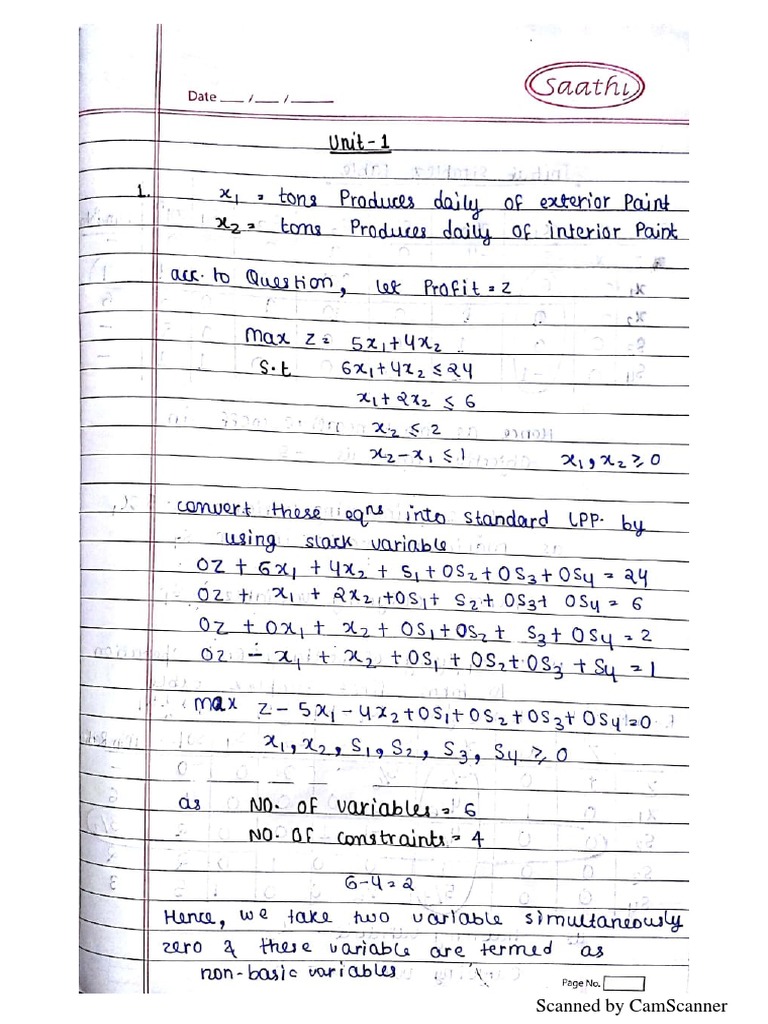 Saathi
Date ___ / ___ / _____
Unit-1
1. x₁ = tons Produces daily of exterior Paint
x₂ = tons Produces daily of interior Paint
acc. to Question, let Profit = z
Max z = 5x₁ + 4x₂
s.t 6x₁ + 4x₂ ≤ 24
x₁ + 2x₂ ≤ 6
x₂ ≤ 2
x₂ - x₁ ≤ 1 x₁, x₂ ≥ 0
convert these eqns into standard LPP. by
using slack variable
0z + 6x₁ + 4x₂ + S₁ + 0S₂ + 0S₃ + 0S₄ = 24
0z + x₁ + 2x₂ + 0S₁ + S₂ + 0S₃ + 0S₄ = 6
0z + 0x₁ + x₂ + 0S₁ + 0S₂ + S₃ + 0S₄ = 2
0z - x₁ + x₂ + 0S₁ + 0S₂ + 0S₃ + S₄ = 1
max z - 5x₁ - 4x₂ + 0S₁ + 0S₂ + 0S₃ + 0S₄ = 0
x₁, x₂, S₁, S₂, S₃, S₄ ≥ 0
as NO. of variables = 6
NO. of constraints = 4
6-4=2
Hence, we take two variable simultaneously
zero & these variable are termed as
non-basic variables
Page No.
Scanned by CamScanner